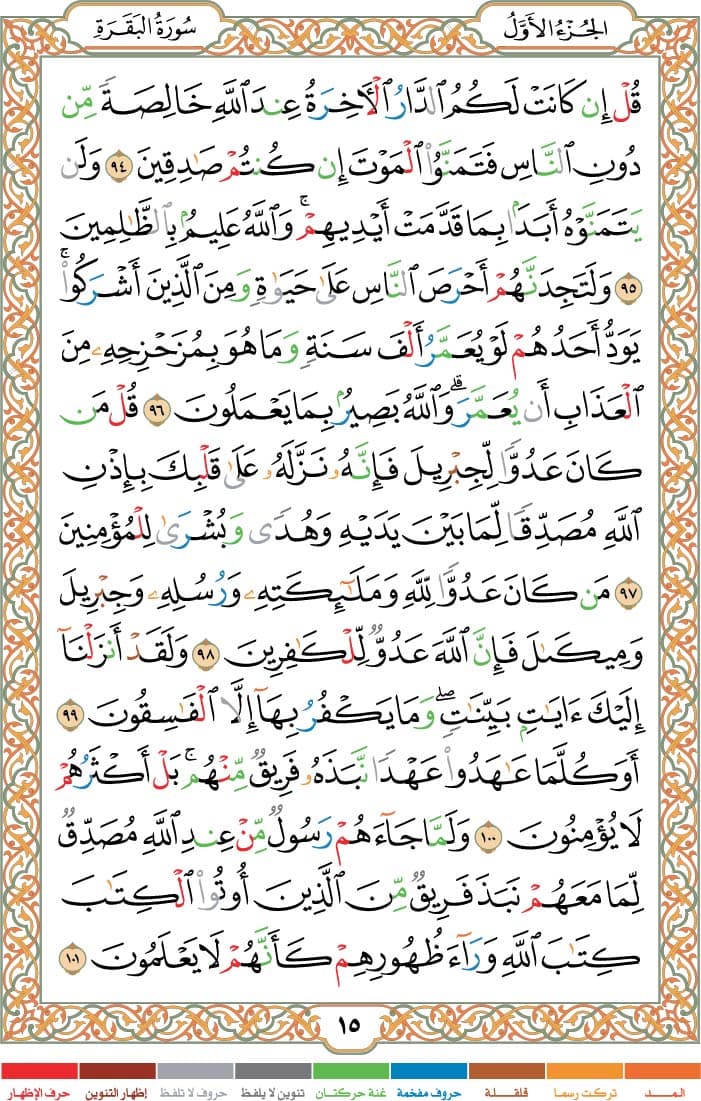 الجُزْءُ الأَوَّلُ
سُورَةُ البَقَرَةِ
قُلْ إِن كَانَتْ لَكُمُ ٱلدَّارُ ٱلْأَخِرَةُ عِندَ ٱللَّهِ خَالِصَةً مِّن
دُونِ ٱلنَّاسِ فَتَمَنَّوُا۟ ٱلْمَوْتَ إِن كُنتُمْ صَٰدِقِينَ ٩٤ وَلَن
يَتَمَنَّوْهُ أَبَدًۢا بِمَا قَدَّمَتْ أَيْدِيهِمْ ۚ وَٱللَّهُ عَلِيمٌۢ بِٱلظَّٰلِمِينَ
٩٥ وَلَتَجِدَنَّهُمْ أَحْرَصَ ٱلنَّاسِ عَلَىٰ حَيَوٰةٍ وَمِنَ ٱلَّذِينَ أَشْرَكُوا۟ ۚ
يَوَدُّ أَحَدُهُمْ لَوْ يُعَمَّرُ أَلْفَ سَنَةٍ وَمَا هُوَ بِمُزَحْزِحِهِۦ مِنَ
ٱلْعَذَابِ أَن يُعَمَّرَ ۗ وَٱللَّهُ بَصِيرٌۢ بِمَا يَعْمَلُونَ ٩٦ قُلْ مَن
كَانَ عَدُوًّا لِّجِبْرِيلَ فَإِنَّهُۥ نَزَّلَهُۥ عَلَىٰ قَلْبِكَ بِإِذْنِ
ٱللَّهِ مُصَدِّقًا لِّمَا بَيْنَ يَدَيْهِ وَهُدًى وَبُشْرَىٰ لِلْمُؤْمِنِينَ
٩٧ مَن كَانَ عَدُوًّا لِّلَّهِ وَمَلَٰٓئِكَتِهِۦ وَرُسُلِهِۦ وَجِبْرِيلَ
وَمِيكَىٰلَ فَإِنَّ ٱللَّهَ عَدُوٌّ لِّلْكَٰفِرِينَ ٩٨ وَلَقَدْ أَنزَلْنَآ
إِلَيْكَ ءَايَٰتٍۭ بَيِّنَٰتٍ ۖ وَمَا يَكْفُرُ بِهَآ إِلَّا ٱلْفَٰسِقُونَ ٩٩
أَوَكُلَّمَا عَٰهَدُوا۟ عَهْدًا نَّبَذَهُۥ فَرِيقٌ مِّنْهُم ۚ بَلْ أَكْثَرُهُمْ
لَا يُؤْمِنُونَ ١٠٠ وَلَمَّا جَآءَهُمْ رَسُولٌ مِّنْ عِندِ ٱللَّهِ مُصَدِّقٌ
لِّمَا مَعَهُمْ نَبَذَ فَرِيقٌ مِّنَ ٱلَّذِينَ أُوتُوا۟ ٱلْكِتَٰبَ
كِتَٰبَ ٱللَّهِ وَرَآءَ ظُهُورِهِمْ كَأَنَّهُمْ لَا يَعْلَمُونَ ١٠١
١٥
المـــد
تركت رسما
قلقـــلة
حروف مفخمة
غنة حركتـان
تنوين لا يلفظ
حروف لا تلفظ
إظهار التنوين
حرف الإظهار